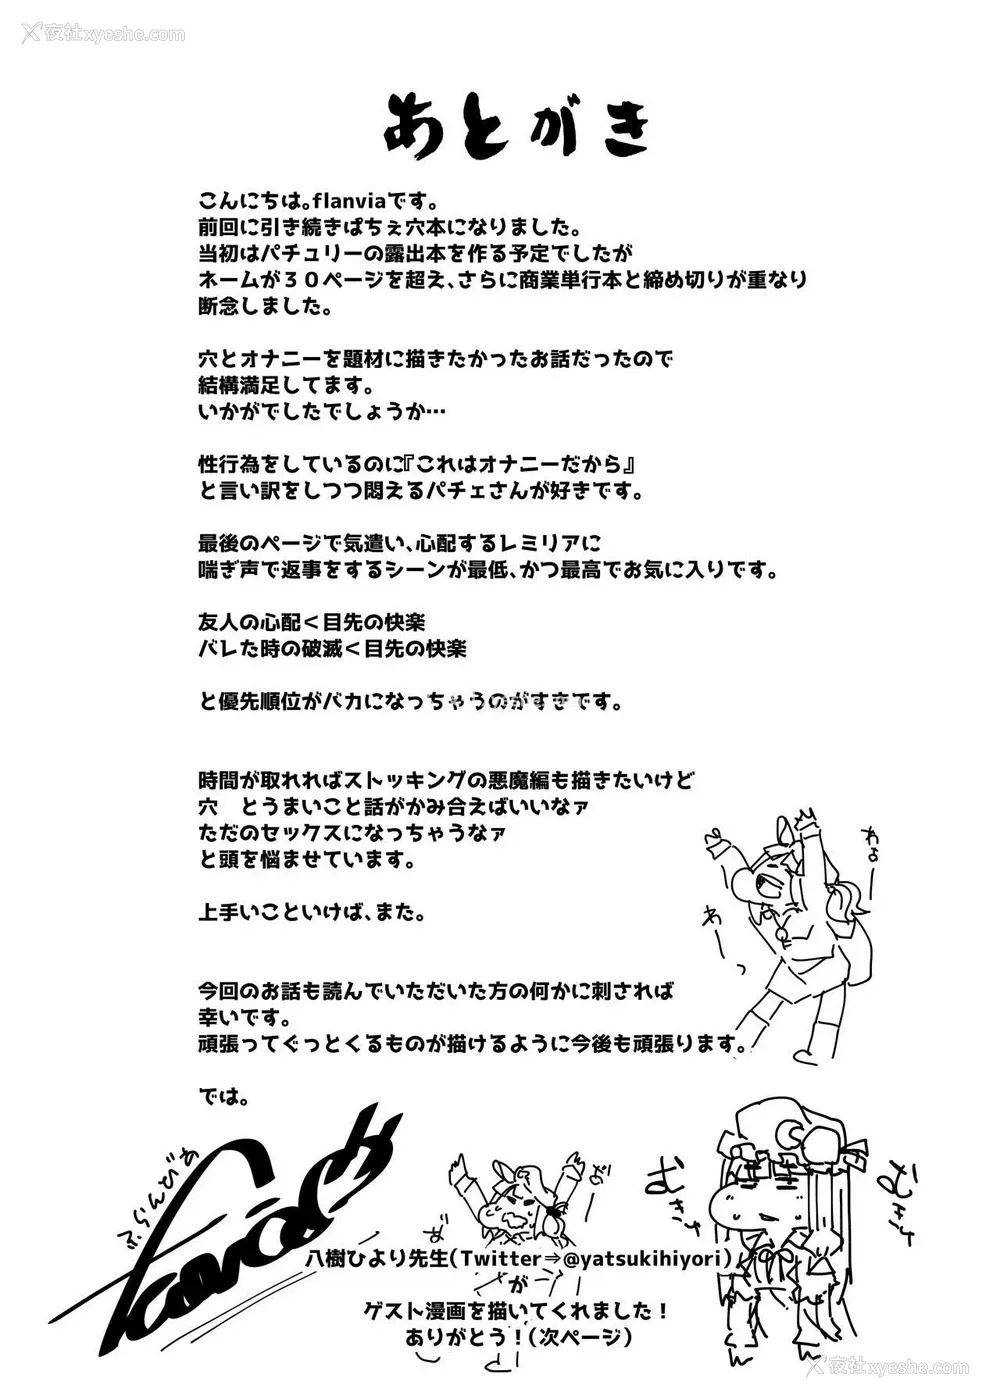 夜社xyeshe.com
あとがき
こんにちは。flanviaです。
前回に引き続きぱちぇ穴本になりました。
当初はパチュリーの露出本を作る予定でしたが
ネームが３０ページを超え、さらに商業単行本と締め切りが重なり
断念しました。
穴とオナニーを題材に描きたかったお話だったので
結構満足してます。
いかがでしたでしょうか…
性行為をしているのに『これはオナニーだから』
と言い訳をしつつ悶えるパチェさんが好きです。
最後のページで気遣い、心配するレミリアに
喘ぎ声で返事をするシーンが最低、かつ最高でお気に入りです。
友人の心配＜目先の快楽
バレた時の破滅＜目先の快楽
と優先順位がバカになっちゃうのがすきです。
時間が取れればストッキングの悪魔編も描きたいけど
穴　とうまいこと話がかみ合えばいいなァ
ただのセックスになっちゃうなァ
と頭を悩ませています。
上手いこといけば、また。
わぁー
わーっ
今回のお話も読んでいただいた方の何かに刺されば
幸いです。
頑張ってぐっとくるものが描けるように今後も頑張ります。
では。
ふらんびあ
むきゅ
むきゅ
八樹ひより先生（Twitter⇒@yatsukihiyori）
が
ゲスト漫画を描いてくれました！
ありがとう！（次ページ）
夜社xyeshe.com